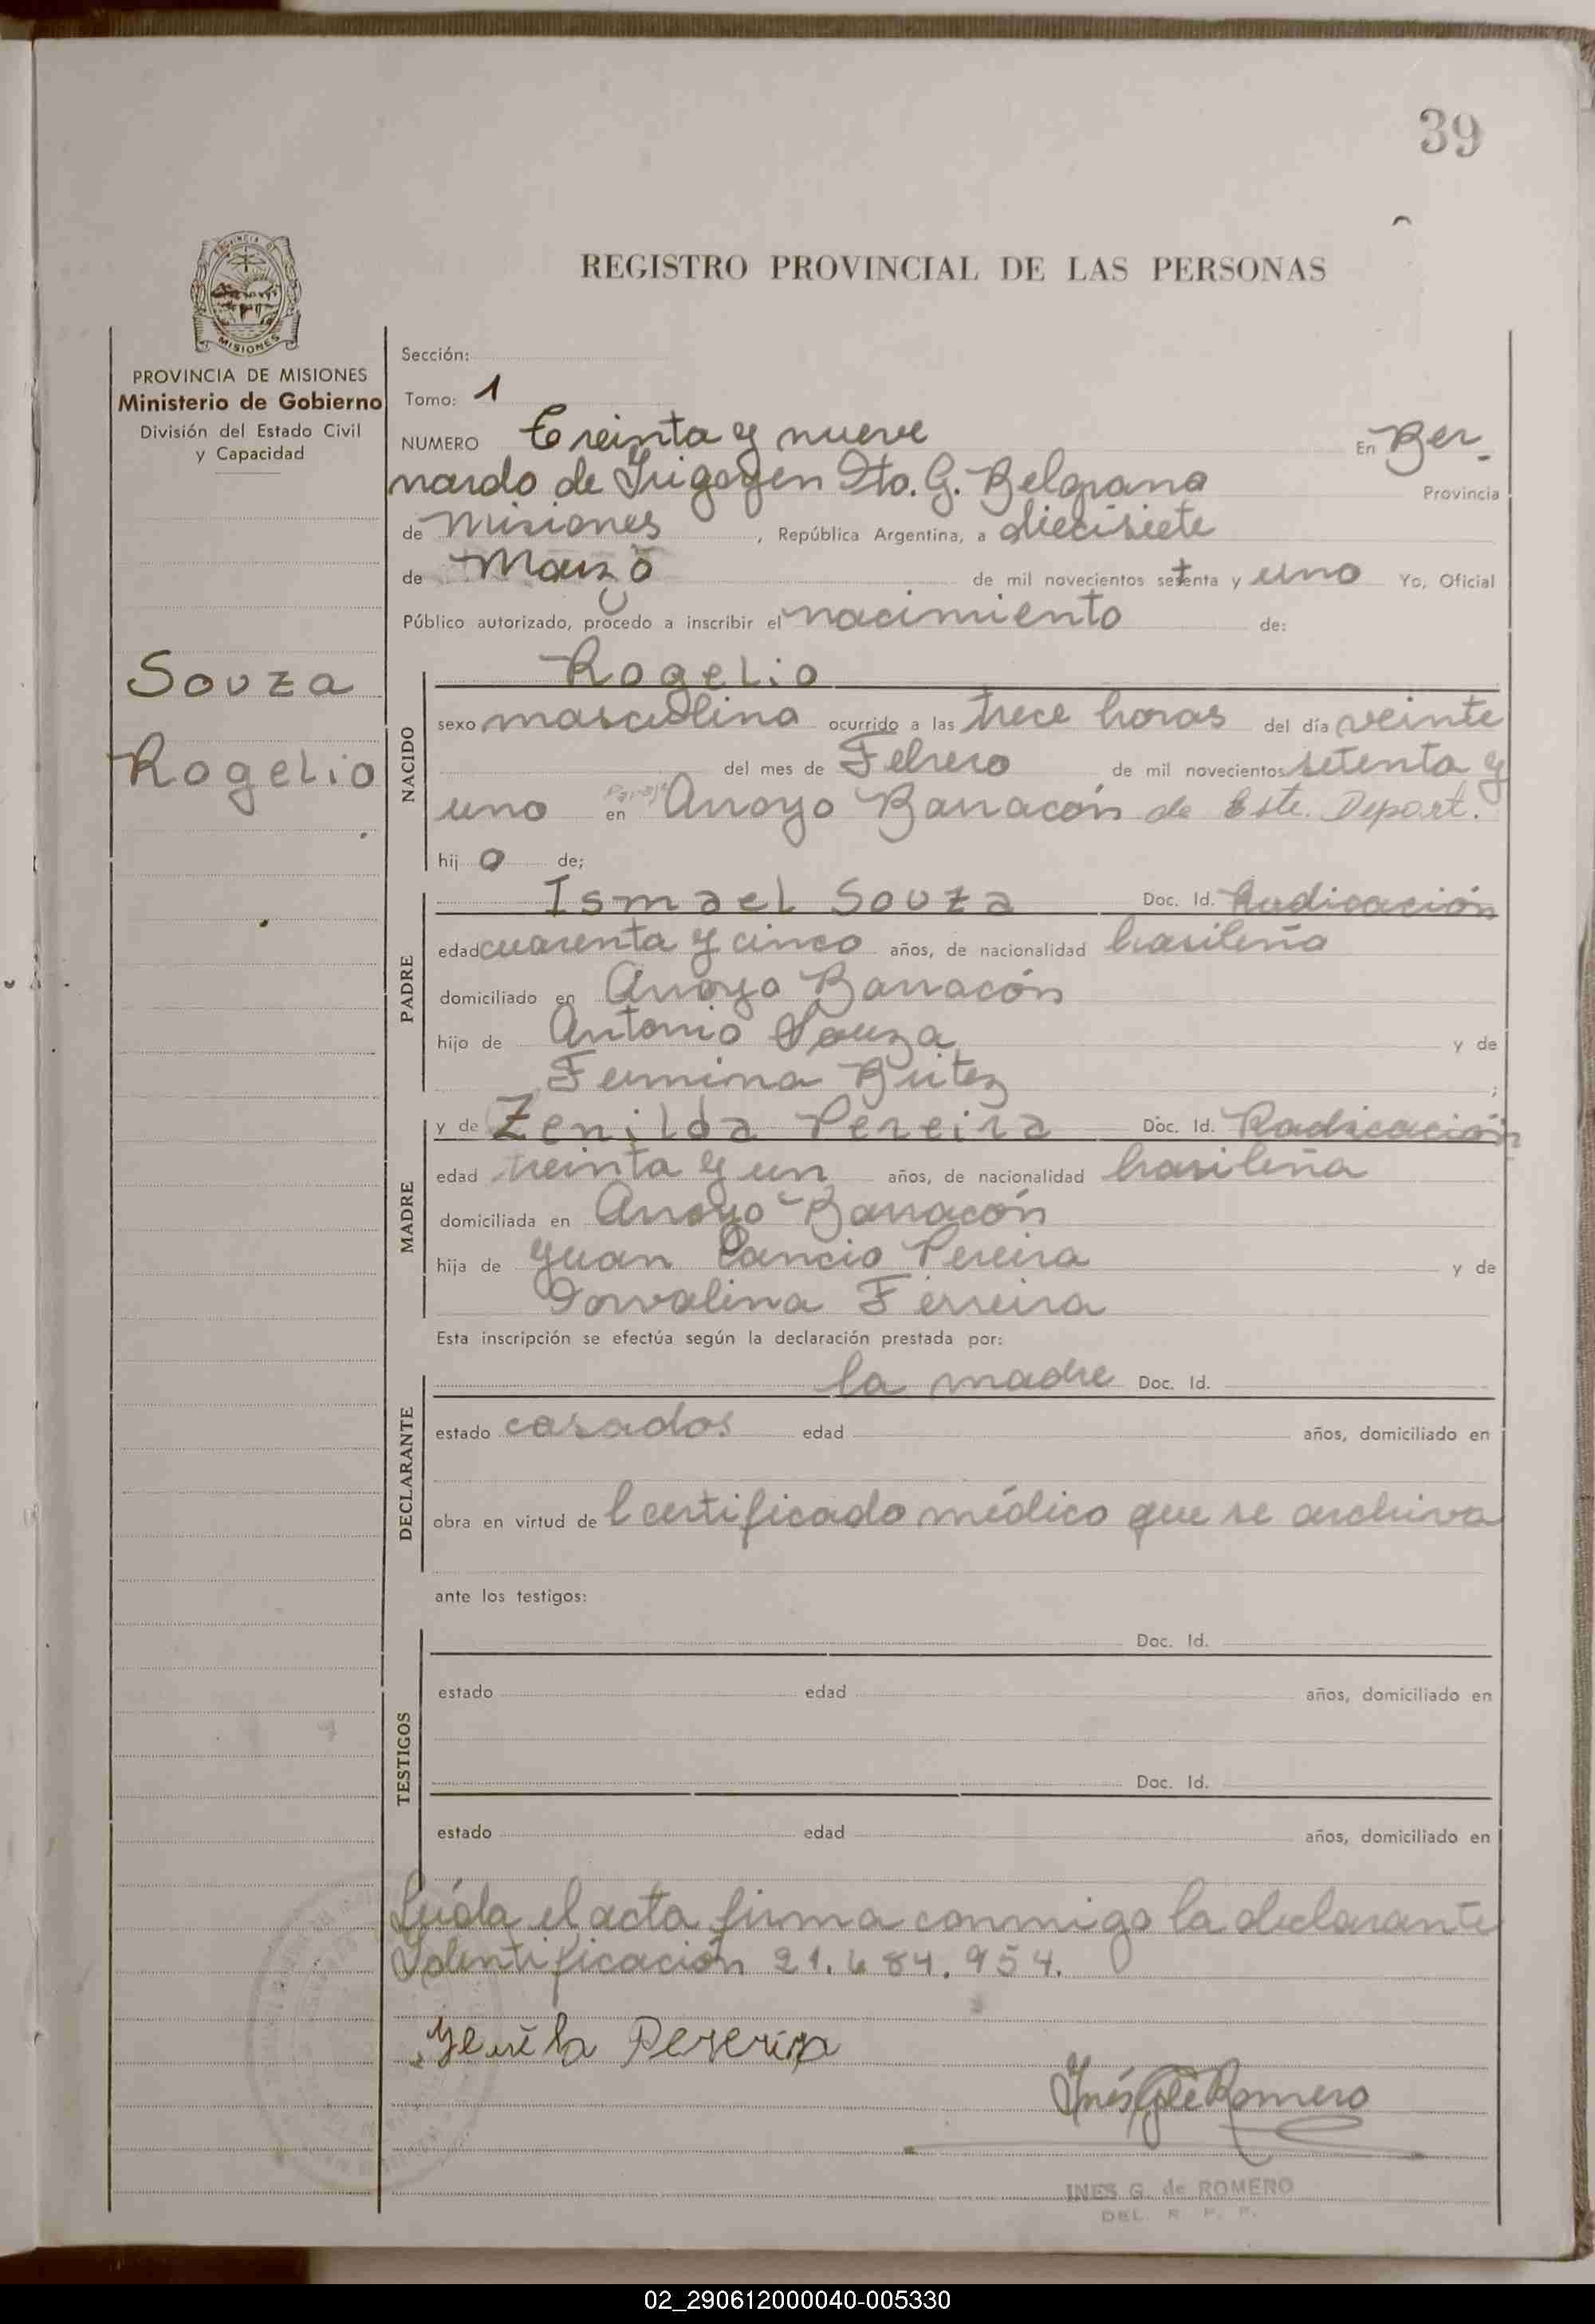 39
REGISTRO PROVINCIAL DE LAS PERSONAS
PROVINCIA DE MISIONES
Ministerio de Gobierno
División del Estado Civil
y Capacidad
Souza
Rogelio
Sección:
Tomo: 1
NUMERO Treinta y nueve En Ber-
nardo de Irigoyen Dto. G. Belgrano Provincia
de Misiones, República Argentina, a diecisiete
de Marzo de mil novecientos setenta y uno Yo, Oficial
Público autorizado, procedo a inscribir el nacimiento de:
NACIDO
Rogelio
sexo masculino ocurrido a las trece horas del día veinte
del mes de Febrero de mil novecientos setenta y
uno en Paraje Arroyo Barracón de Este. Depart.
hij o de;
PADRE
Ismael Souza Doc. Id. Radicación
edad cuarenta y cinco años, de nacionalidad brasileña
domiciliado en Arroyo Barracón
hijo de Antonio Souza y de
Fermina Britez ;
MADRE
y de Zenilda Pereira Doc. Id. Radicación
edad treinta y un años, de nacionalidad brasileña
domiciliada en Arroyo Barracón
hija de Juan Cancio Pereira y de
Dorvalina Ferreira
Esta inscripción se efectúa según la declaración prestada por:
DECLARANTE
la madre Doc. Id.
estado casados edad años, domiciliado en
obra en virtud de l certificado médico que se archiva
ante los testigos:
TESTIGOS
Doc. Id.
estado edad años, domiciliado en
Doc. Id.
estado edad años, domiciliado en
Leída el acta firma conmigo la declarante
Identificación 21.684.954.
Pereira
Inés G de Romero
INES G. de ROMERO
DEL. R. P. P.
02_290612000040-005330